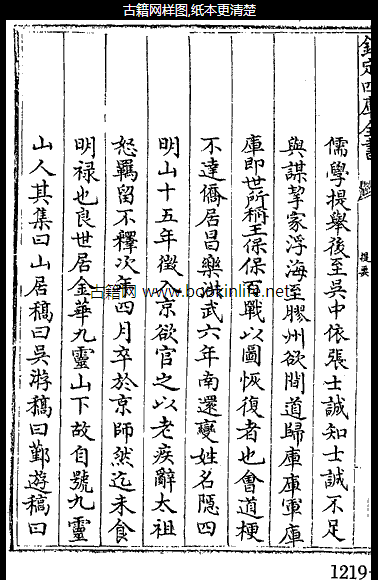 古籍网样图,纸本更清楚
欽定四庫全書
提要
儒學提舉後至吳中依張士誠知士誠不足
與謀挈家浮海至膠州欲間道歸庫庫軍庫
庫即世所稱王保保百戰以圖恢復者也會道梗
不達僑居昌樂洪武六年南還變姓名隱四
明山十五年徵入京欲官之以老疾辭太祖
怒羈留不釋次年四月卒於京師然迄未食
明禄也良世居金華九靈山下故自號九靈
山人其集曰山居稿曰吳游稿曰鄞遊稿曰
古籍网 www.bookinlife.net
1219-